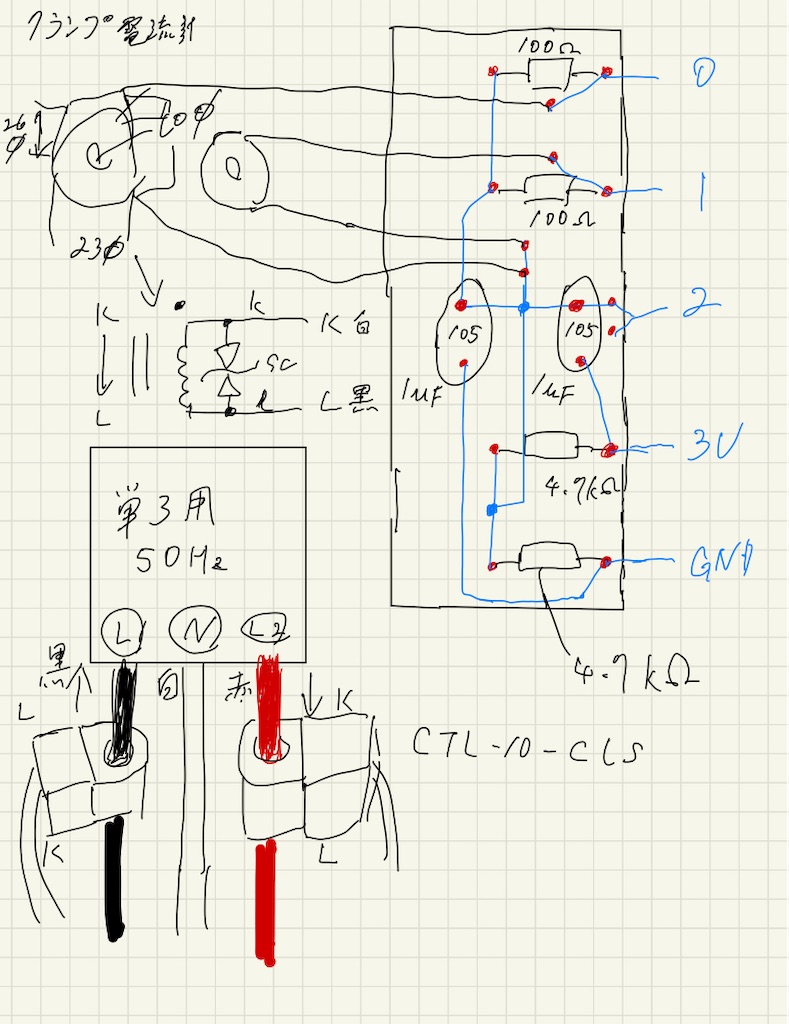 クランプ電流計
100Ω
0
26φ
10φ
1
100Ω
23φ
K
L
k
K 白
SC
l
L 黒
105
105
2
1μF
1μF
3V
4.7kΩ
GND
4.7kΩ
単3用
50Hz
L1
N
L2
黒
白
赤
L
K
K
L
CTL-10-CLS